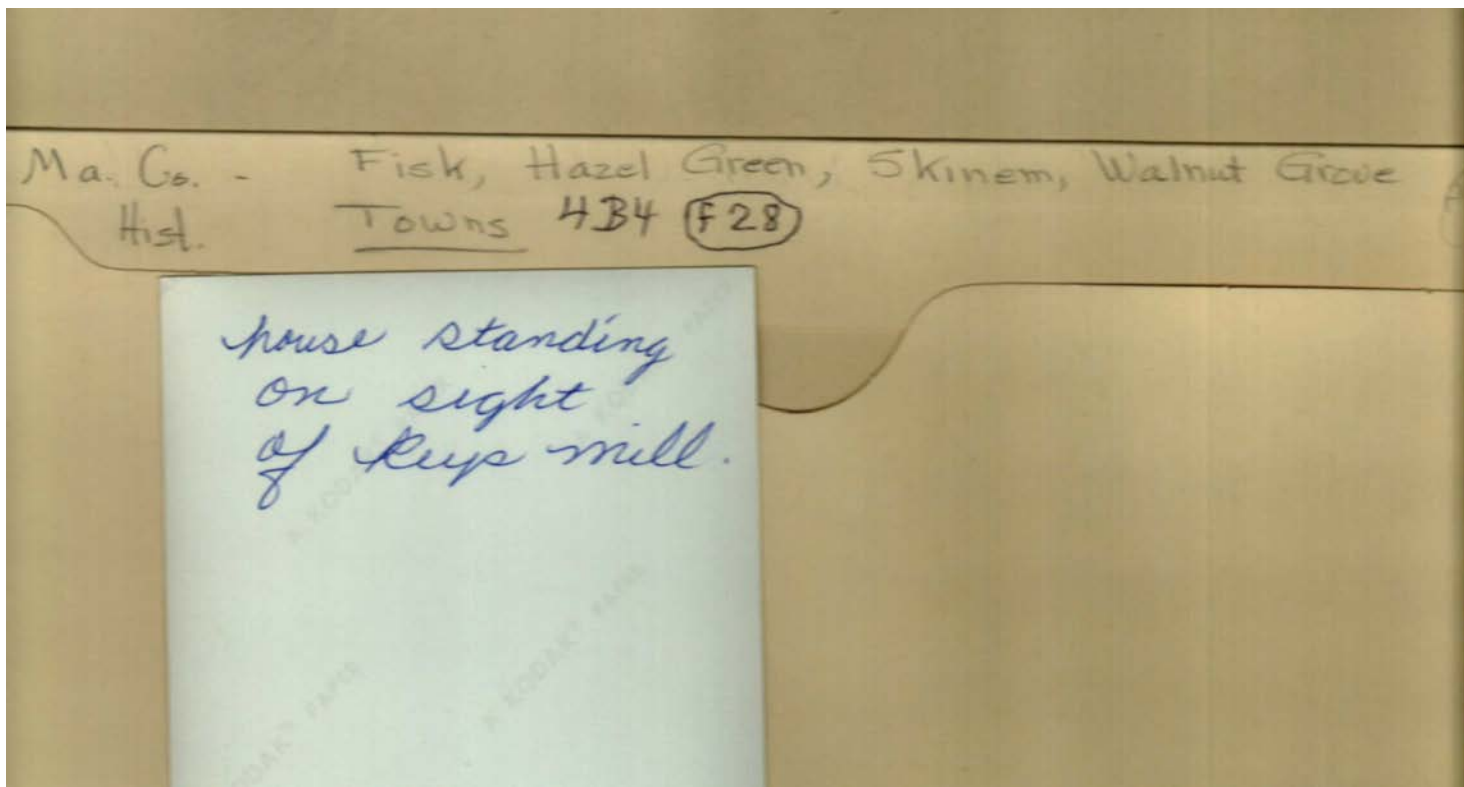 Ma. Co. - Fisk, Hazel Green, Skinem, Walnut Grove
Hist. Towns 4B4 F28
house standing
on sight
of Keys mill.
A KODAK PAPER
A KODAK PAPER
KODAK PAPER